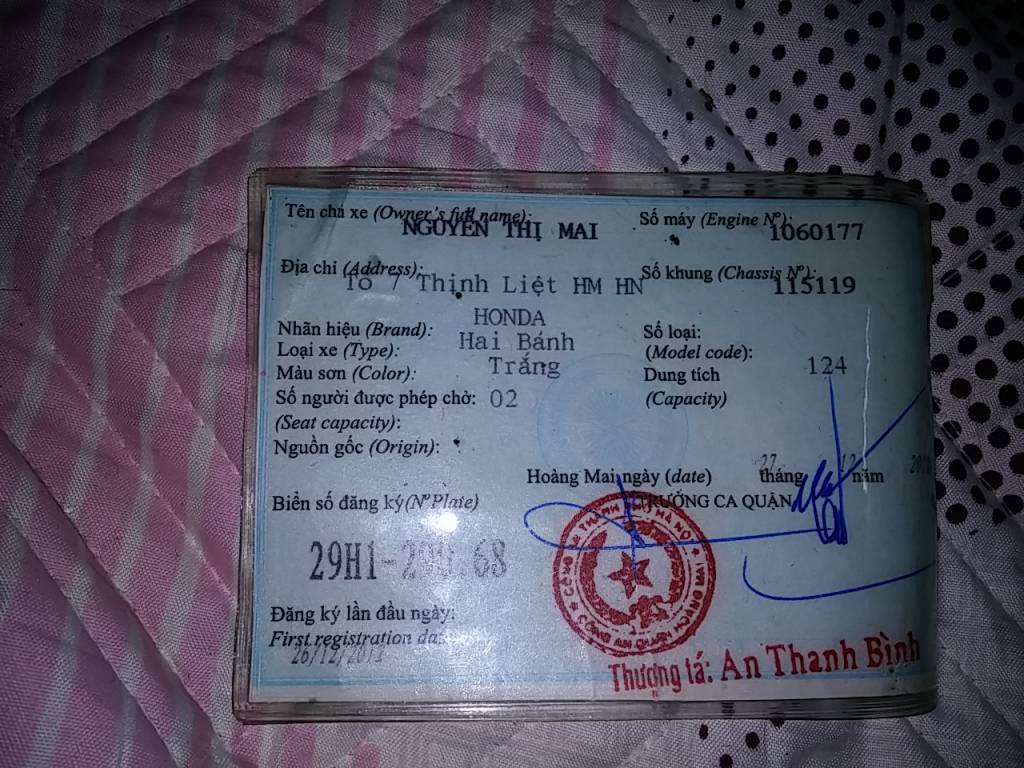 Tên chủ xe (Owner's full name): NGUYỄN THỊ MAI
Số máy (Engine Nº): 1060177
Địa chỉ (Address): Tổ 7 Thịnh Liệt HM HN
Số khung (Chassis Nº): 115119
Nhãn hiệu (Brand): HONDA
Số loại:
Loại xe (Type): Hai Bánh
(Model code):
Màu sơn (Color): Trắng
Dung tích 124
Số người được phép chở: 02
(Capacity)
(Seat capacity):
Nguồn gốc (Origin):
Hoàng Mai, ngày (date) 27 tháng 12 năm
Biển số đăng ký (Nº Plate)
TRƯỞNG CA QUẬN
29H1-
.68
CÔNG AN THÀNH PHỐ HÀ NỘI
CÔNG AN QUẬN HOÀNG MAI
Đăng ký lần đầu ngày:
First registration
26/12/
Thượng tá: An Thanh Bình